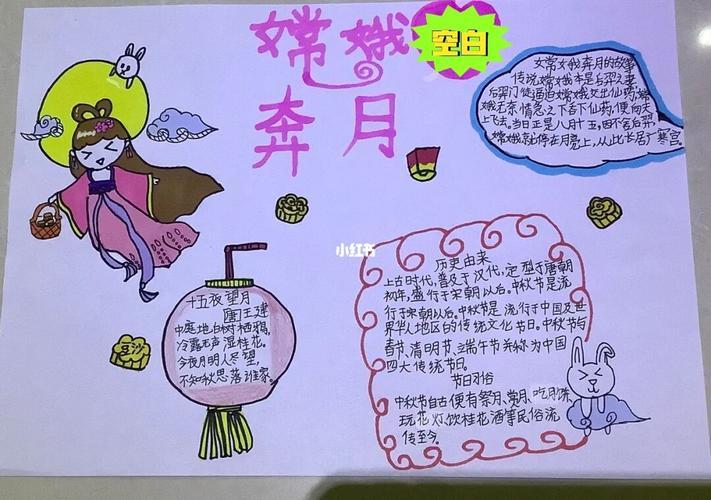 嫦娥
奔月
空白
女常女娥奔月的故事
传说嫦娥本是后羿之妻
后羿门徒逼迫嫦娥交出仙药,嫦
娥无奈情急之下吞下仙药,便向天
上飞去。当日正是八月十五,因不舍后羿,
嫦娥就停在月亮上,从此长居广寒宫。
小红书
十五夜望月
国王建
中庭地白树栖鸦,
冷露无声湿桂花。
今夜月明人尽望,
不知秋思落谁家
豆沙
历史由来
上古时代,普及于汉代,定型于唐朝
初年,盛行于宋朝以后。中秋节是流
行于宋朝以后。中秋节是流行于中国及世
界华人地区的传统文化节日。中秋节与
春节、清明节、端午节并称为中国
四大传统节日。
节日习俗
中秋节自古便有祭月、赏月、吃月饼、
玩花灯、饮桂花酒等民俗流
传至今。